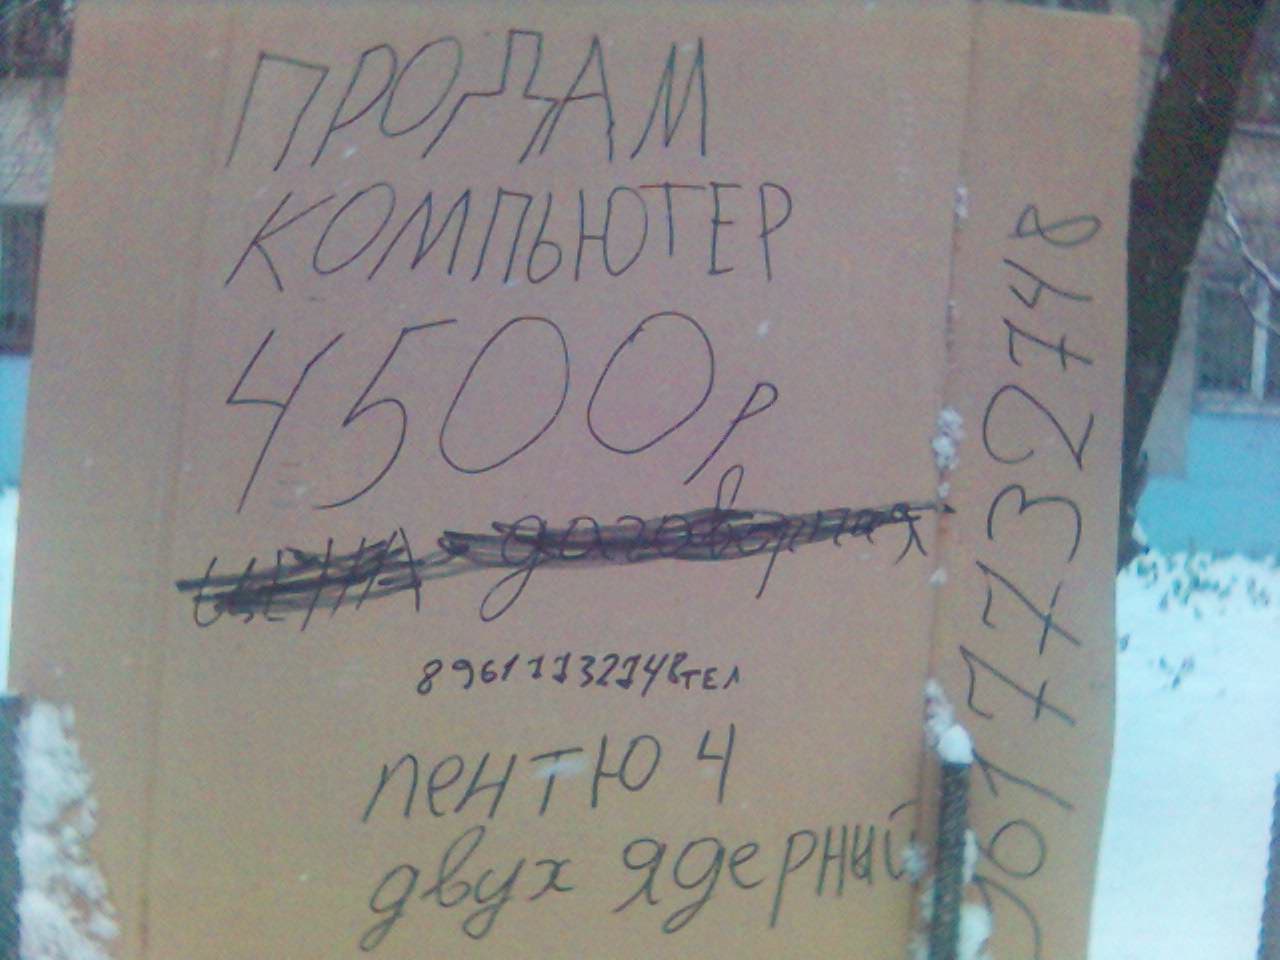 ПРОДАМ
КОМПЬЮТЕР
4500р
ЦЕНА договорная
89617732748 тел
пентю 4
двух ядерный
9617732748